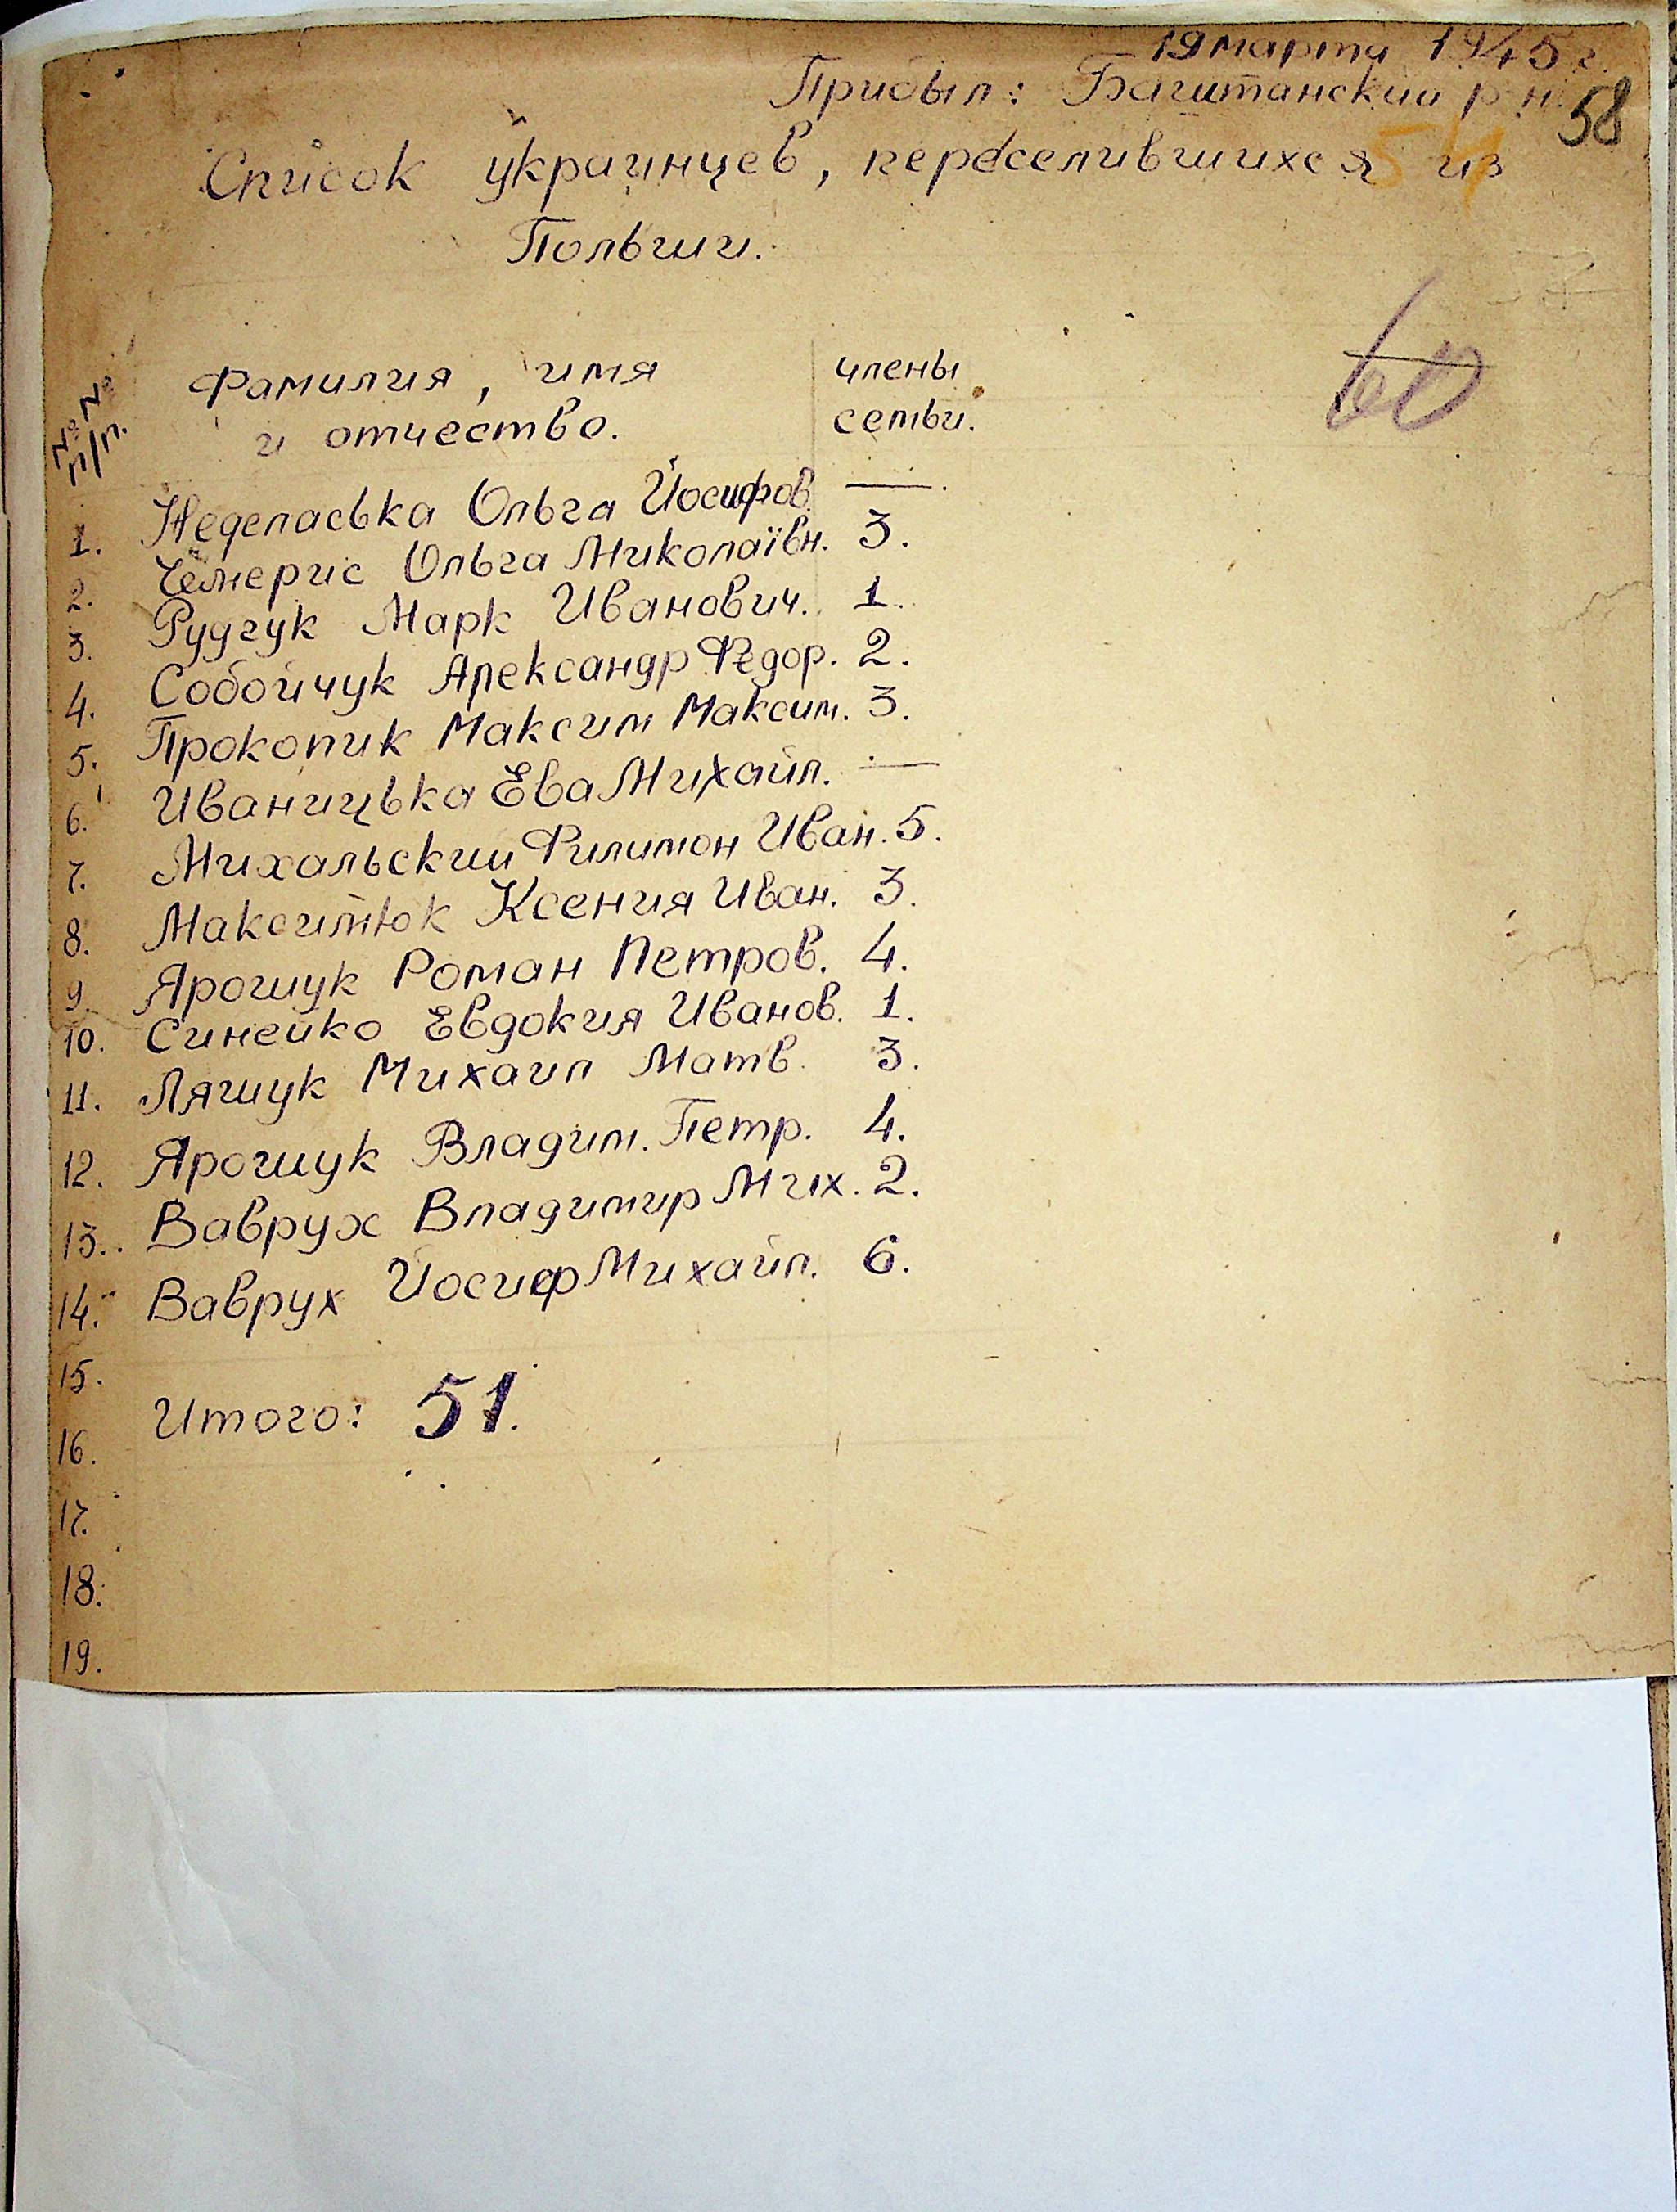 19 марта 1945 г.
Прибыл: Баштанский р-н
58
Список украинцев, переселившихся из
Польши.
60
№№ п/п.
Фамилия, имя и отчество.
члены семьи.
1. Неделаська Ольга Йосифов. —.
2. Чемерис Ольга Миколаївн. 3.
3. Рудчук Марк Иванович. 1.
4. Собойчук Александр Федор. 2.
5. Прокопик Максим Максим. 3.
6. Иваницька Ева Михайл. —
7. Михальский Филимон Иван. 5.
8. Максимюк Ксения Иван. 3.
9. Ярошук Роман Петров. 4.
10. Синейко Евдокия Иванов. 1.
11. Ляшук Михаил Матв. 3.
12. Ярошук Владим. Петр. 4.
13. Ваврух Владимир Мих. 2.
14. Ваврух Йосиф Михайл. 6.
15.
Итого: 51.
16.
17.
18.
19.